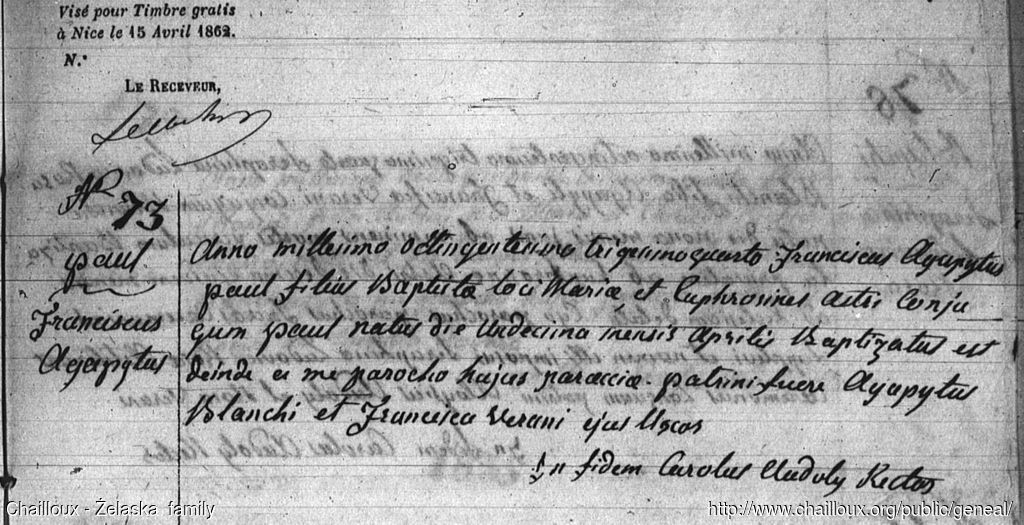 Visé pour Timbre gratis
à Nice le 15 Avril 1862.
N.°
LE RECEVEUR,
N° 73
paul
Franciscus
Agapytus
Anno millesimo octingentesimo trigesimoquarto Franciscus Agapytus
paul filius Baptistæ loci Mariæ et Euphrosines Astri Conju
gum paul natus die undecima mensis Aprilis Baptizatus est
deinde a me parocho hujus paræciæ. patrini fuere Agapytus
Blanchi et Francisca Verani ejus
In fidem Carolus Audoly Rector
Chailloux - Żelaska family
http://www.chailloux.org/public/geneal/